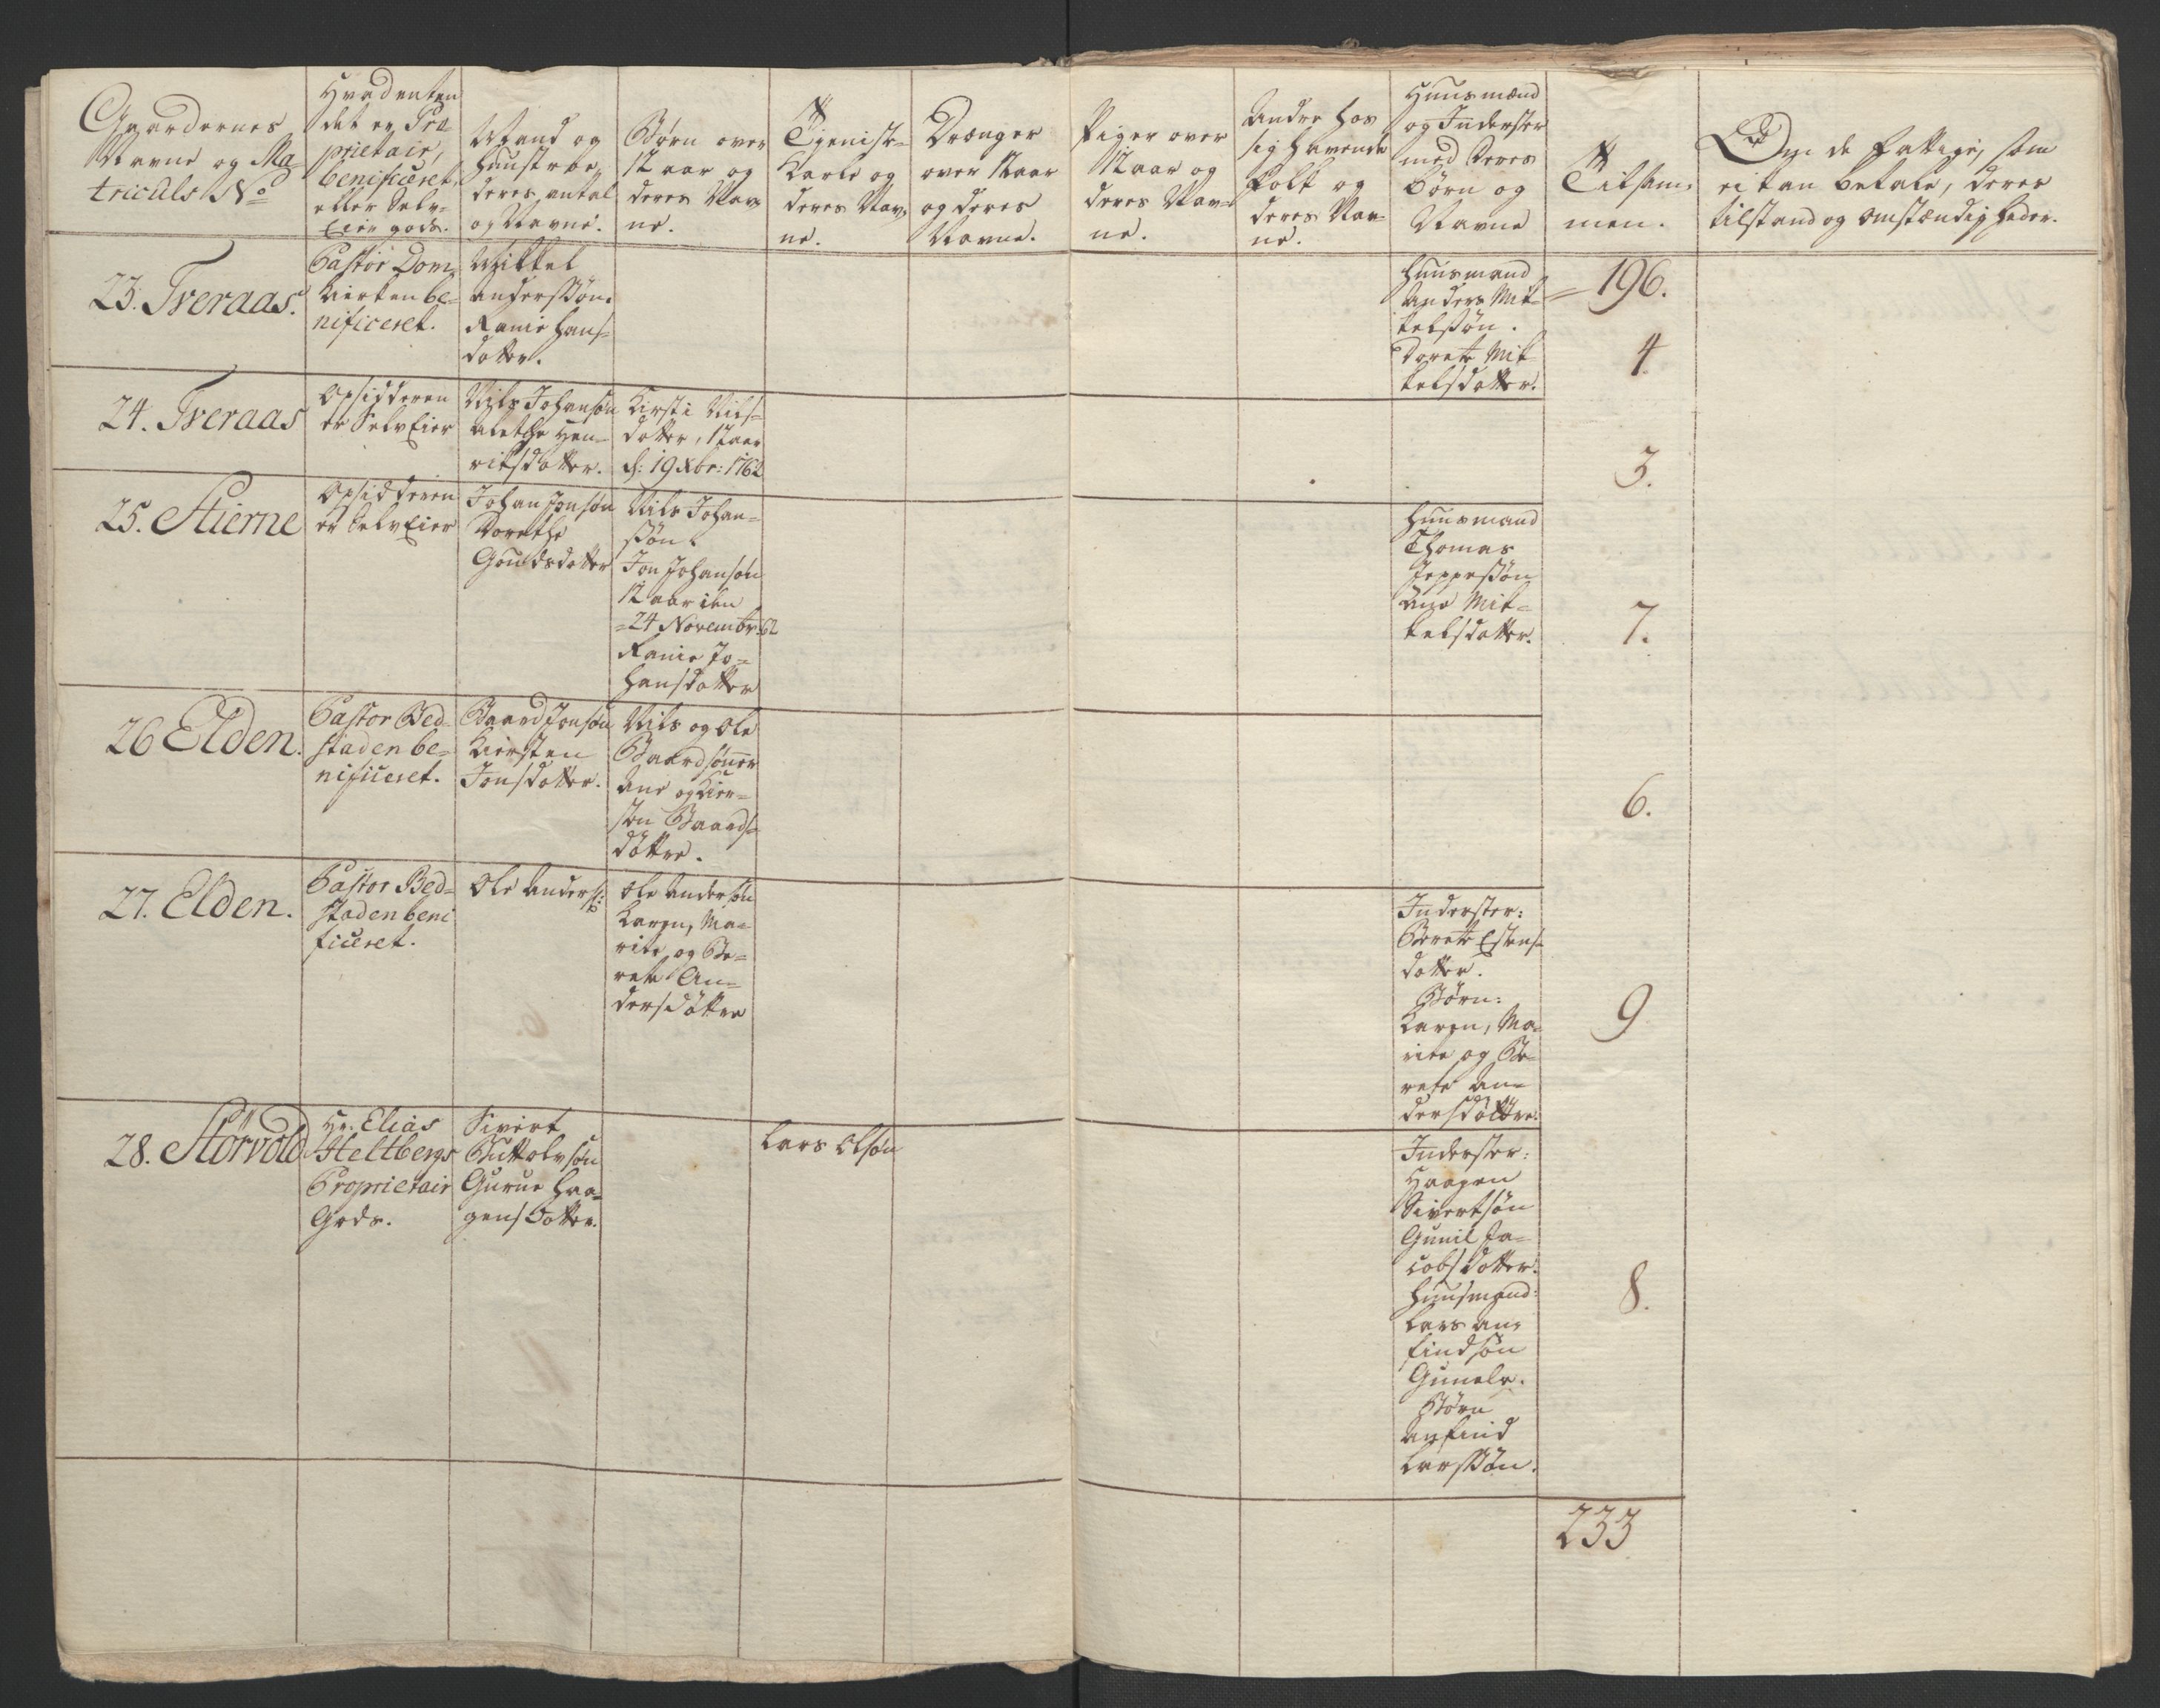 Gaardernes
Navne og Ma-
triculs No
Hvad enten
det er Pro
prietair,
benificeret,
eller Selv-
Eier gods.
Mand og
Huustroe
deres antal
og Navne.
Børn over
12 aar og
deres Nav
ne.
Tieniste-
Karle og
deres Nav
ne.
Drænger
over 12 aar
og deres
Navne.
Piger over
12 aar og
deres Nav-
ne.
Andre hos
sig havende
folk og
deres Nav-
ne.
Huusmænd
og Inderster
med deres
børn og
Navne
Tilsam-
men.
Om de fattige, som
ei kan betale, deres
tilstand og omstændigheder.
23. Tveraas.
Pastor Dom
Kirken be-
nificeret.
Mikkel
Anderssøn.
Ranie Hans-
datter.
Huusmand
Anders Mik-
kelssøn.
Dorete Mik
kelsdatter.
= 196.
4.
24. Tveraas
Opsidderen
er SelvEier
Nils Johansøn
Alethe Hen-
riksdatter.
Kirsti Nils-
datter, 12 aar
d: 19 Xbr: 1762
3.
25. Stierne
Opsidderen
er SelvEier
Johan Jonsøn
Dorethe
Gouldsdatter
Nils Johan-
søn
Jon Johansøn
12 aar den
24 Novembr: 62
Ranie Jo-
hansdatter
Huusmand
Thomas
Jeppesøn
Ane Mik-
kelsdatter.
7.
26 Elden.
Pastor Bed-
staden be-
nificeret.
Baard Jonsøn
Kiersten
Jonsdatter.
Nils og Ole
Baardsønner
Ane og Kier-
sten Baards-
døttre.
6.
27. Elden.
Pastor Bed-
staden beni
ficeret.
Ole Anders:
Ole Andersøn
Karen, Ma-
rite og Be-
rete An-
dersdøttre
Inderster:
Berete Estens-
datter.
Børn:
Karen, Ma-
rite og Be-
rete An-
dersdøttre.
9
28. Størvold
Hr. Elias
Heltbergs
Proprietair
Gods.
Sivert
Buttolvsøn
Gurue Haa-
gensdotter.
Lars Olsøn
Inderster:
Haagen
Sivertsøn
Gunil Ja-
cobsdotter.
Huusmand:
Lars An-
findsøn
Gunele.
Børn
Anfind
Larssøn.
8.
233